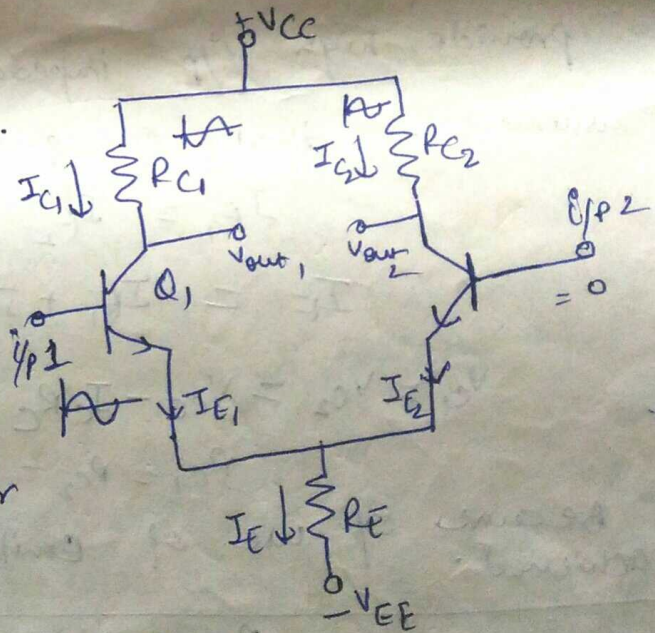 +VCC
IC1
RC1
IC2
RC2
i/p 2
= 0
Vout1
Vout2
Q1
i/p 1
IE1
IE2
r
IE
RE
-VEE